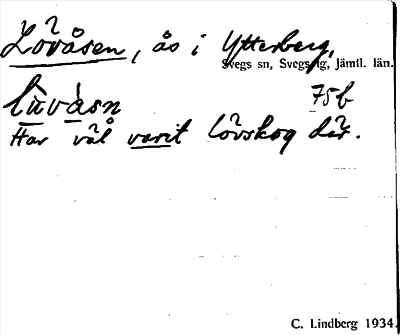 Lövåsen, ås i Ytterberg,
Svegs sn, Svegs tg, Jämtl. län.
lùvàsn 75b
Har väl varit lövskog där.
C. Lindberg 1934.